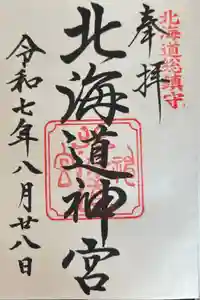 北海道総鎮守
奉拝
北海道神宮
令和七年八月廿八日